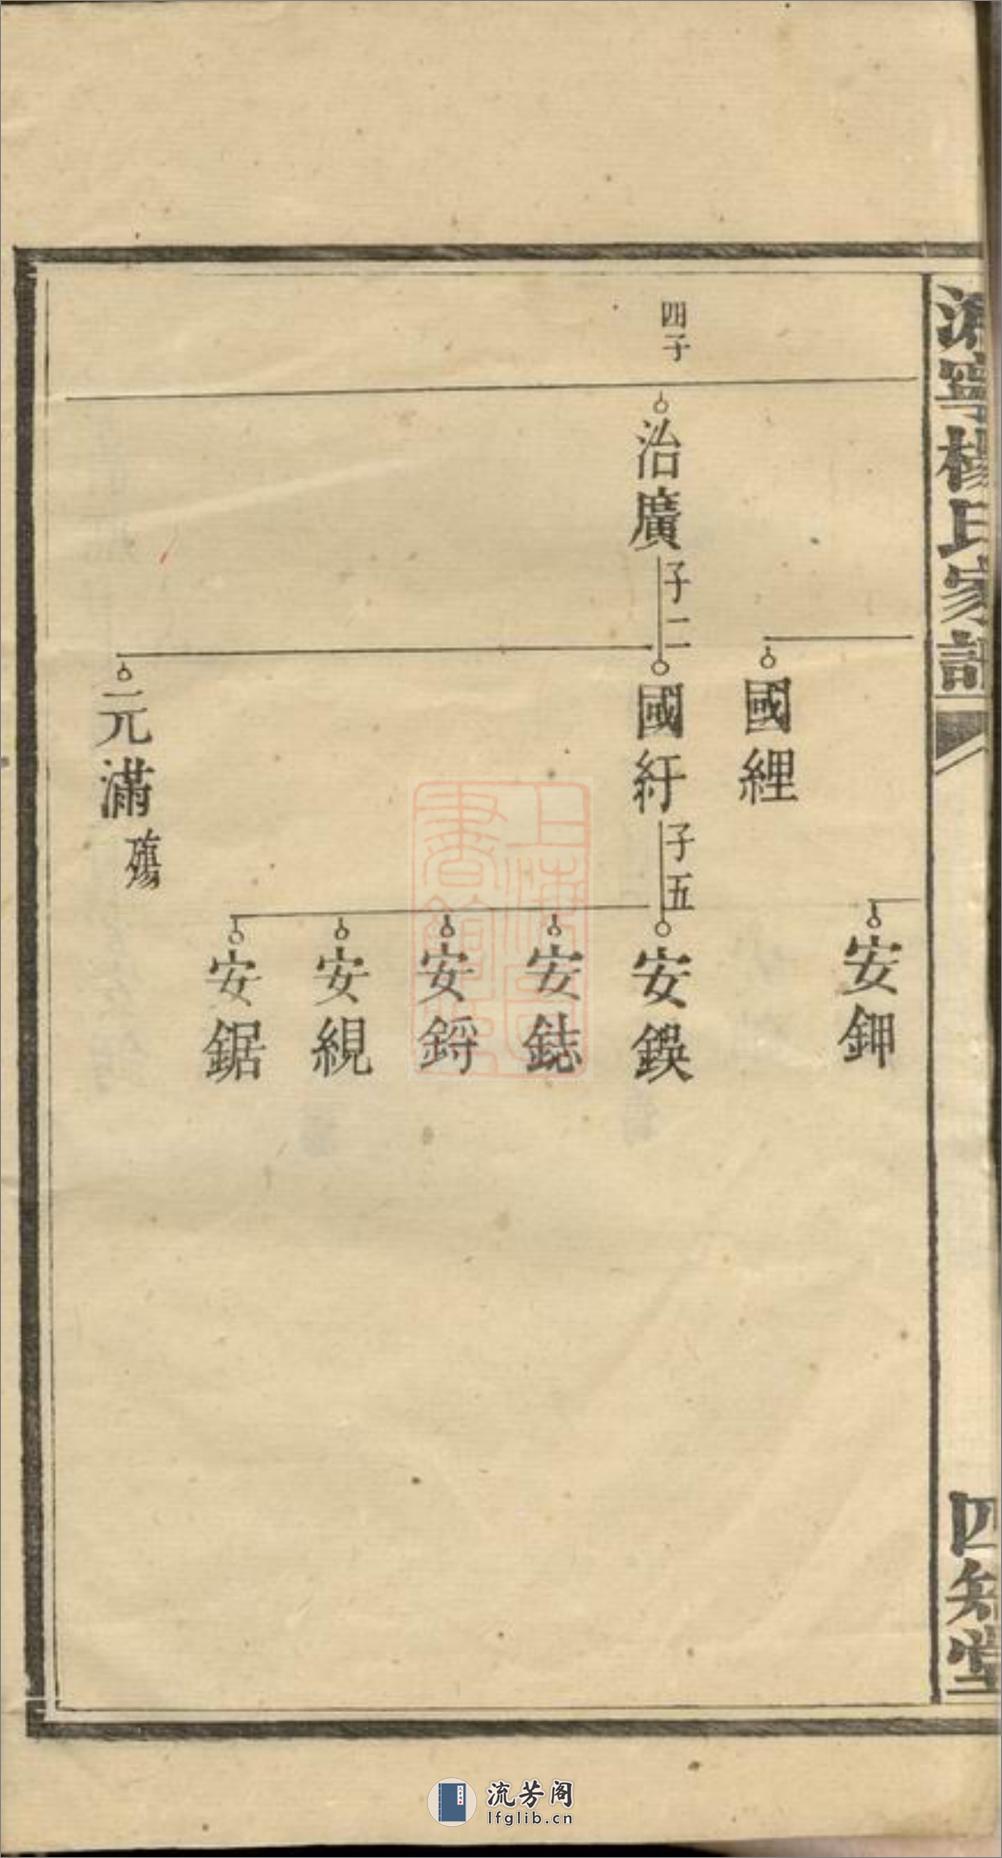 溈寧楊氏家譜
四知堂
安鉀
國經
四子
治廣
子二
國紆
子五
安鍈
安鋕
安鋝
安綥
安鋸
元滿
殤
上海圖書館藏
流芳阁
lfglib.cn